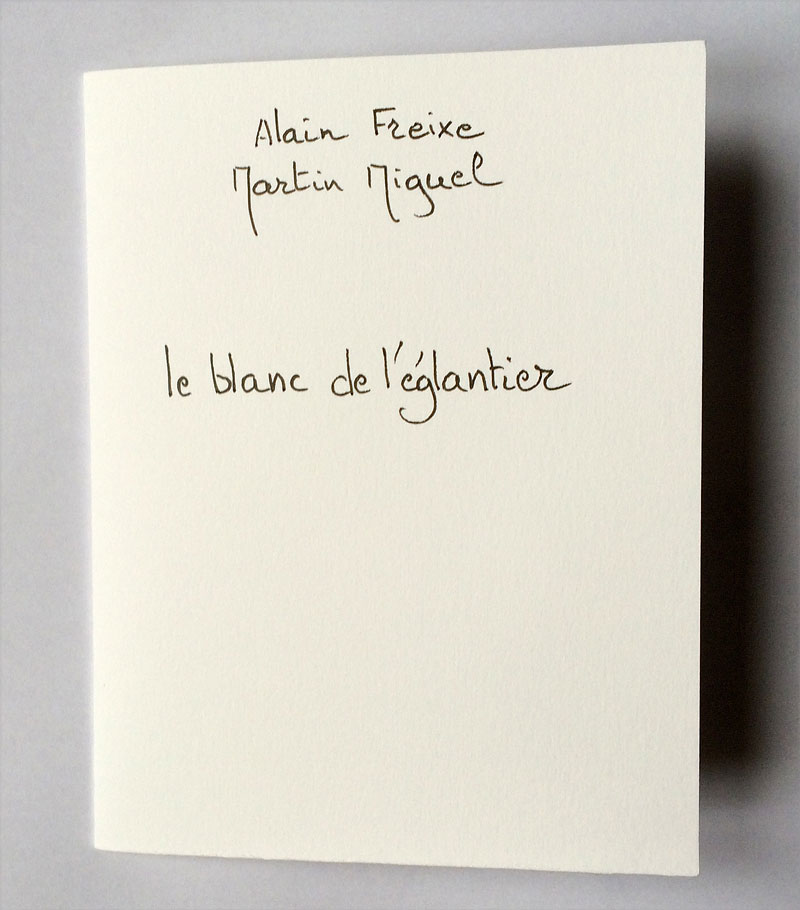 Alain Freixe
Martin Miguel
le blanc de l'églantier